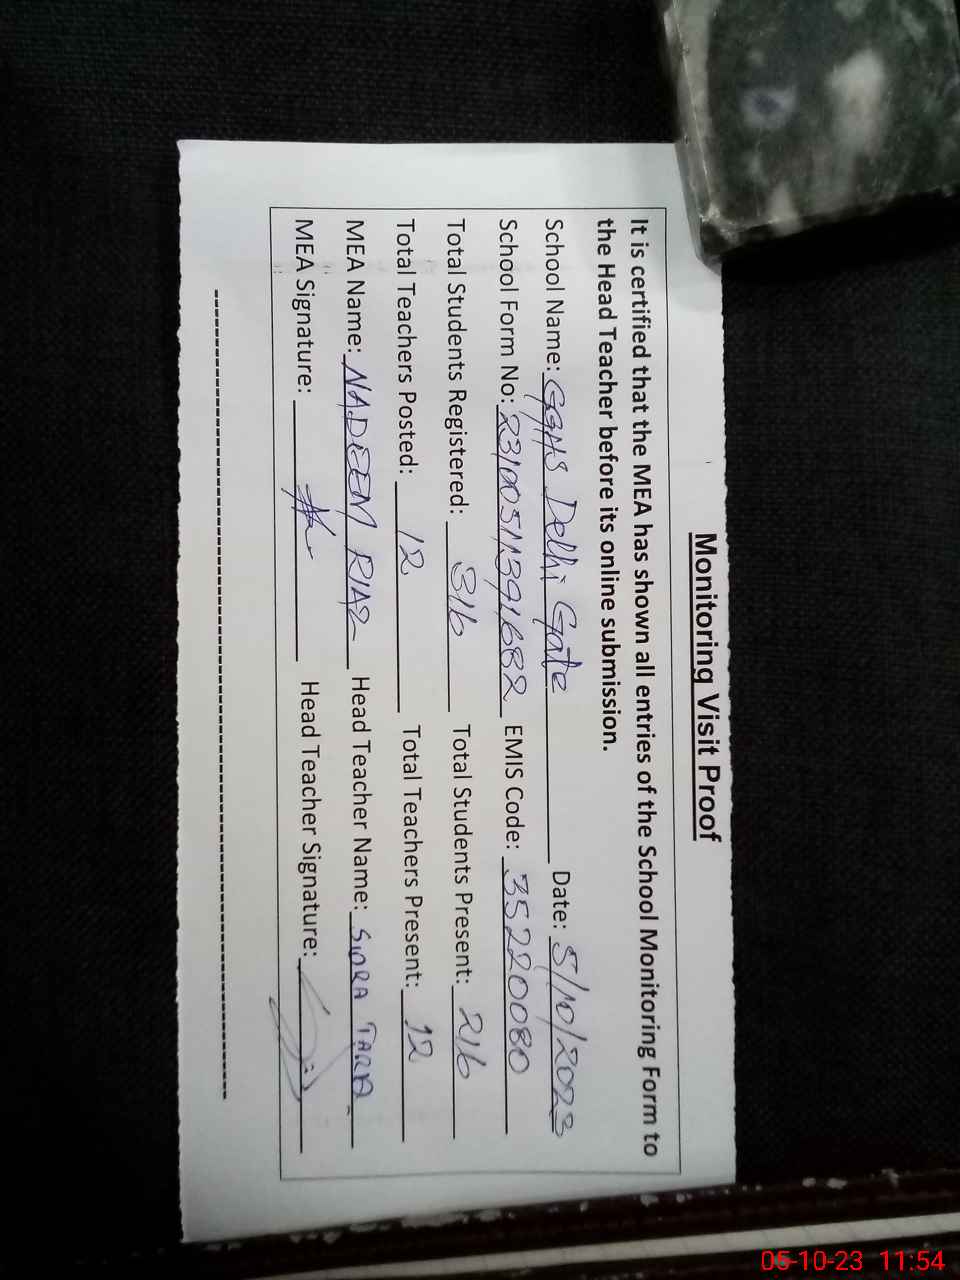 Monitoring Visit Proof
It is certified that the MEA has shown all entries of the School Monitoring Form to
the Head Teacher before its online submission.
School Name: GGHS Delhi Gate Date: 5/10/2023
School Form No: 23100511391682 EMIS Code: 35220080
Total Students Registered: 316 Total Students Present: 216
Total Teachers Posted: 12 Total Teachers Present: 12
MEA Name: NADEEM RIAZ Head Teacher Name: SIDRA TARIQ
MEA Signature: Head Teacher Signature:
05-10-23 11:54